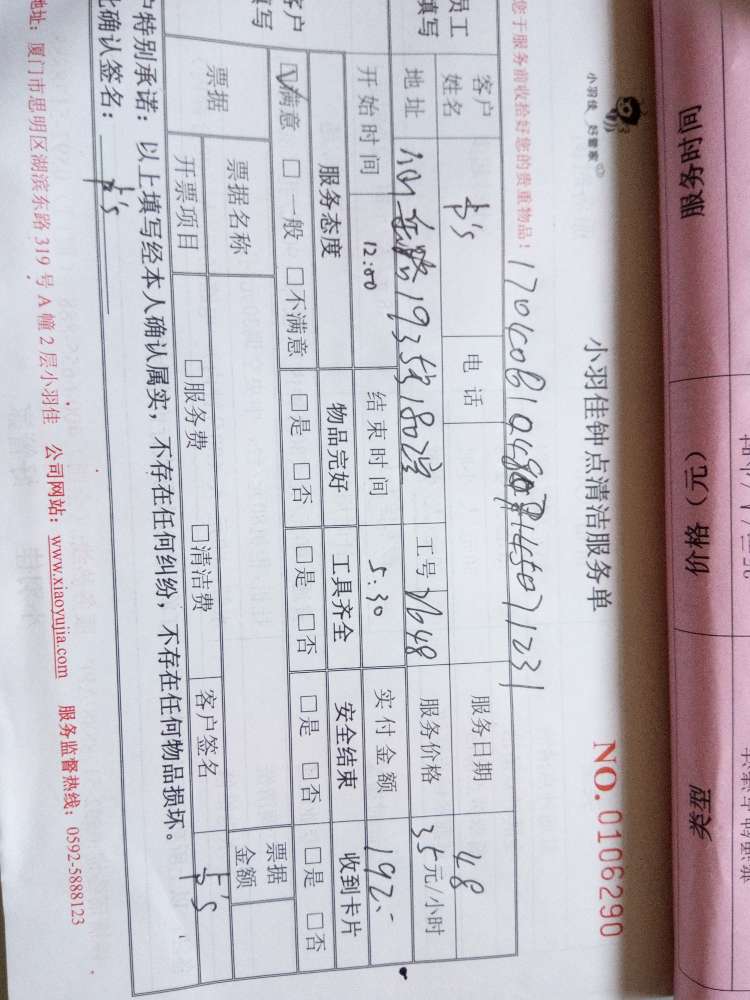 服务时间 价格（元） 类型
小羽佳 好管家
小羽佳钟点清洁服务单
NO. 0106290
您于服务前收拾好您的贵重物品！
员工填写 客户姓名 电话 服务日期 4.8
地址 193号1802室 工号 服务价格 35元/小时
开始时间 12:00 结束时间 5:30 实付金额 192.-
客户填写 服务态度 物品完好 工具齐全 安全结束 收到卡片
☑满意 □一般 □不满意 □是 □否 □是 □否 □是 □否 □是 □否
票据 票据名称 票据金额
开票项目 □服务费 □清洁费 客户签名
户特别承诺：以上填写经本人确认属实，不存在任何纠纷，不存在任何物品损坏。
此确认签名：
地址：厦门市思明区湖滨东路 319 号 A 幢 2 层小羽佳 公司网站：www.xiaoyujia.com 服务监督热线：0592-5888123